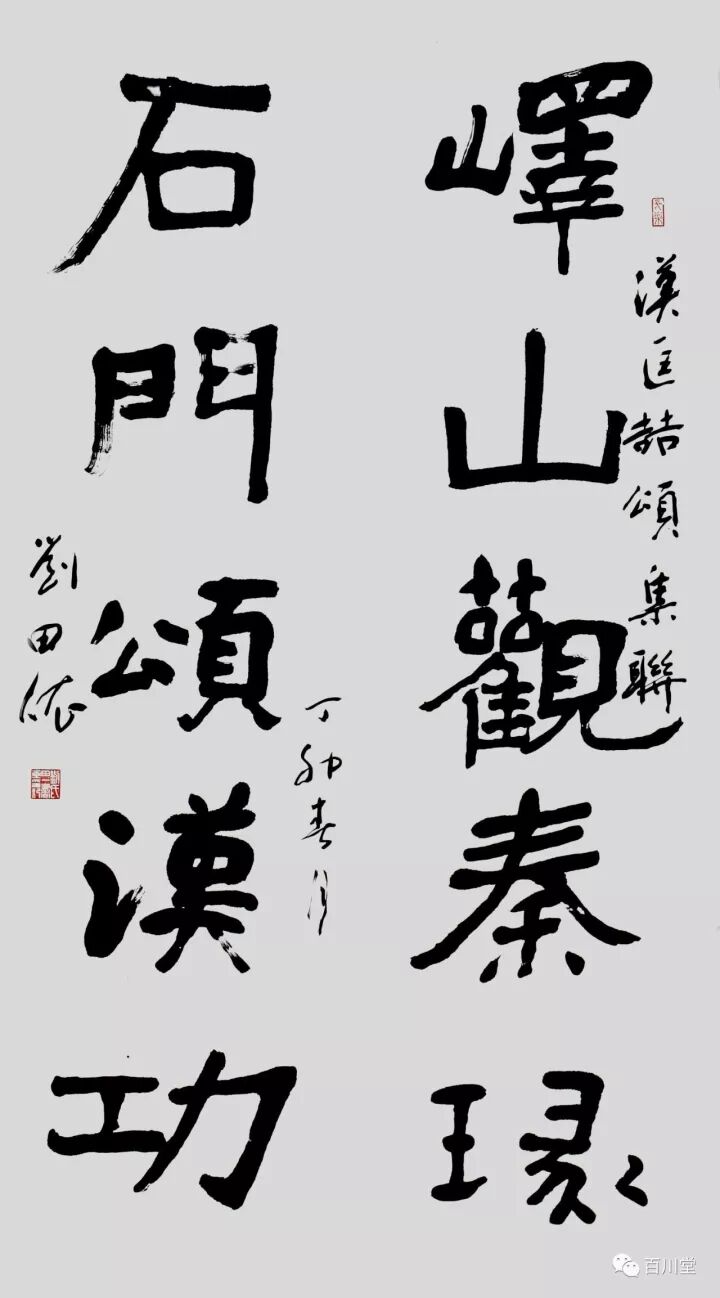 嶧山觀秦瑑
漢匡喆頌集聯
石門頌漢功
丁卯春月
劉田依
百川堂